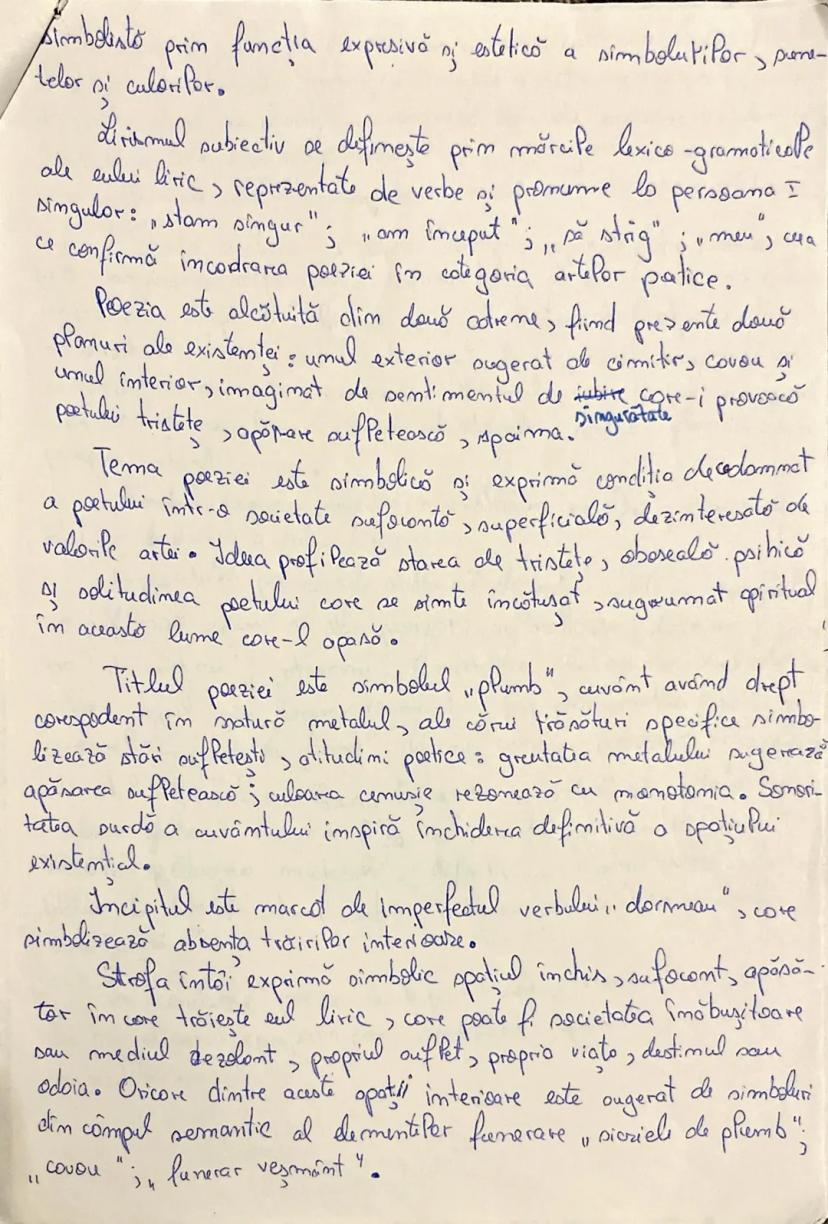 simbolistă prin funcția expresivă și estetică a simbolurilor, sune-
telor și culorilor.
Lirismul subiectiv se definește prin mărcile lexico-gramaticale
ale eului liric, reprezentate de verbe și pronume la persoana I
singular: „stam singur"; „am început"; „să strig"; „meu", ceea
ce confirmă încadrarea poeziei în categoria artelor poetice.
Poezia este alcătuită din două catrene, fiind prezente două
planuri ale existenței: unul exterior sugerat de cimitir, cavou și
unul interior, imaginat de sentimentul de iubire care-i provoacă
singurătate
poetului tristețe, apăsare sufletească, spaima.
Tema poeziei este simbolică și exprimă condiția de condamnat
a poetului într-o societate sufocantă, superficială, dezinteresată de
valorile artei. Ideea profilează starea de tristețe, oboseală psihică
și solitudinea poetului care se simte încătușat, sugrumat spiritual
în această lume care-l apasă.
Titlul poeziei este simbolul „plumb", cuvânt având drept
corespodent în natură metalul, ale cărui trăsături specifice simbo-
lizează stări sufletești, atitudini poetice: greutatea metalului sugerează
apăsarea sufletească; culoarea cenușie rezonează cu monotonia. Sonori-
tatea surdă a cuvântului inspiră închiderea definitivă a spațiului
existențial.
Incipitul este marcat de imperfectul verbului „dormeau", care
simbolizează absența trăirilor interioare.
Strofa întâi exprimă simbolic spațiul închis, sufocant, apăsă-
tor în care trăiește eul liric, care poate fi societatea înăbușitoare
sau mediul dezolant, propriul suflet, propria viață, destinul sau
odaia. Oricare dintre aceste spații interioare este sugerat de simboluri
din câmpul semantic al elementelor funerare „sicriele de plumb";
„cavou"; „funerar veșmânt".